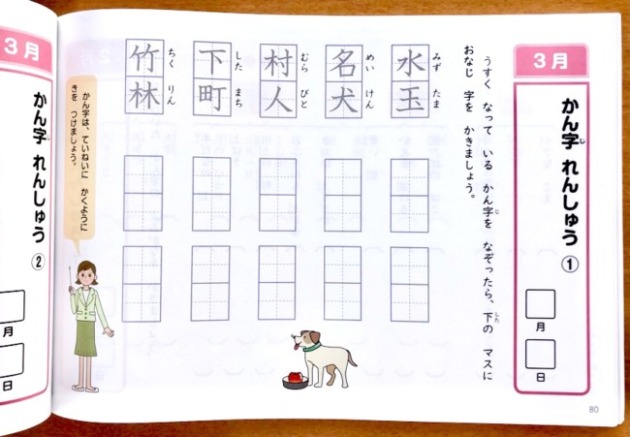 3月
かん字 れんしゅう ①
じ
月
日
うすく なって いる かん字を なぞったら、下の マスに
じ
した
おなじ 字を かきましょう。
水玉
みず たま
名犬
めい けん
村人
むら びと
下町
した まち
竹林
ちく りん
かん字は、ていねいに かくように
きを つけましょう。
80
3月
かん字 れんしゅう ②
月
日